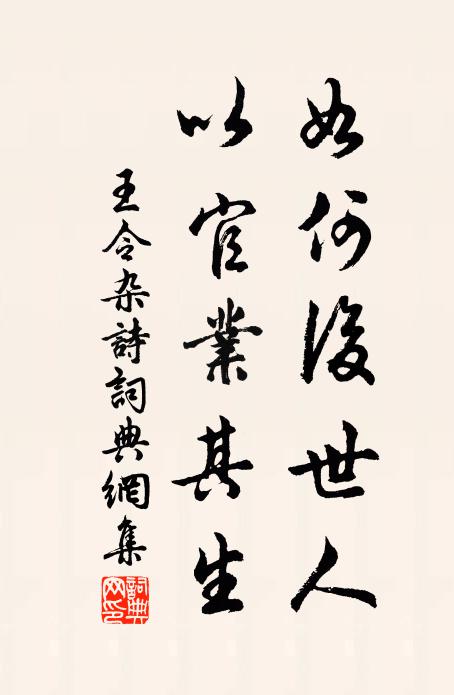 如何後世人
以官業其生
王令杂詩詞典網集
詞典网印